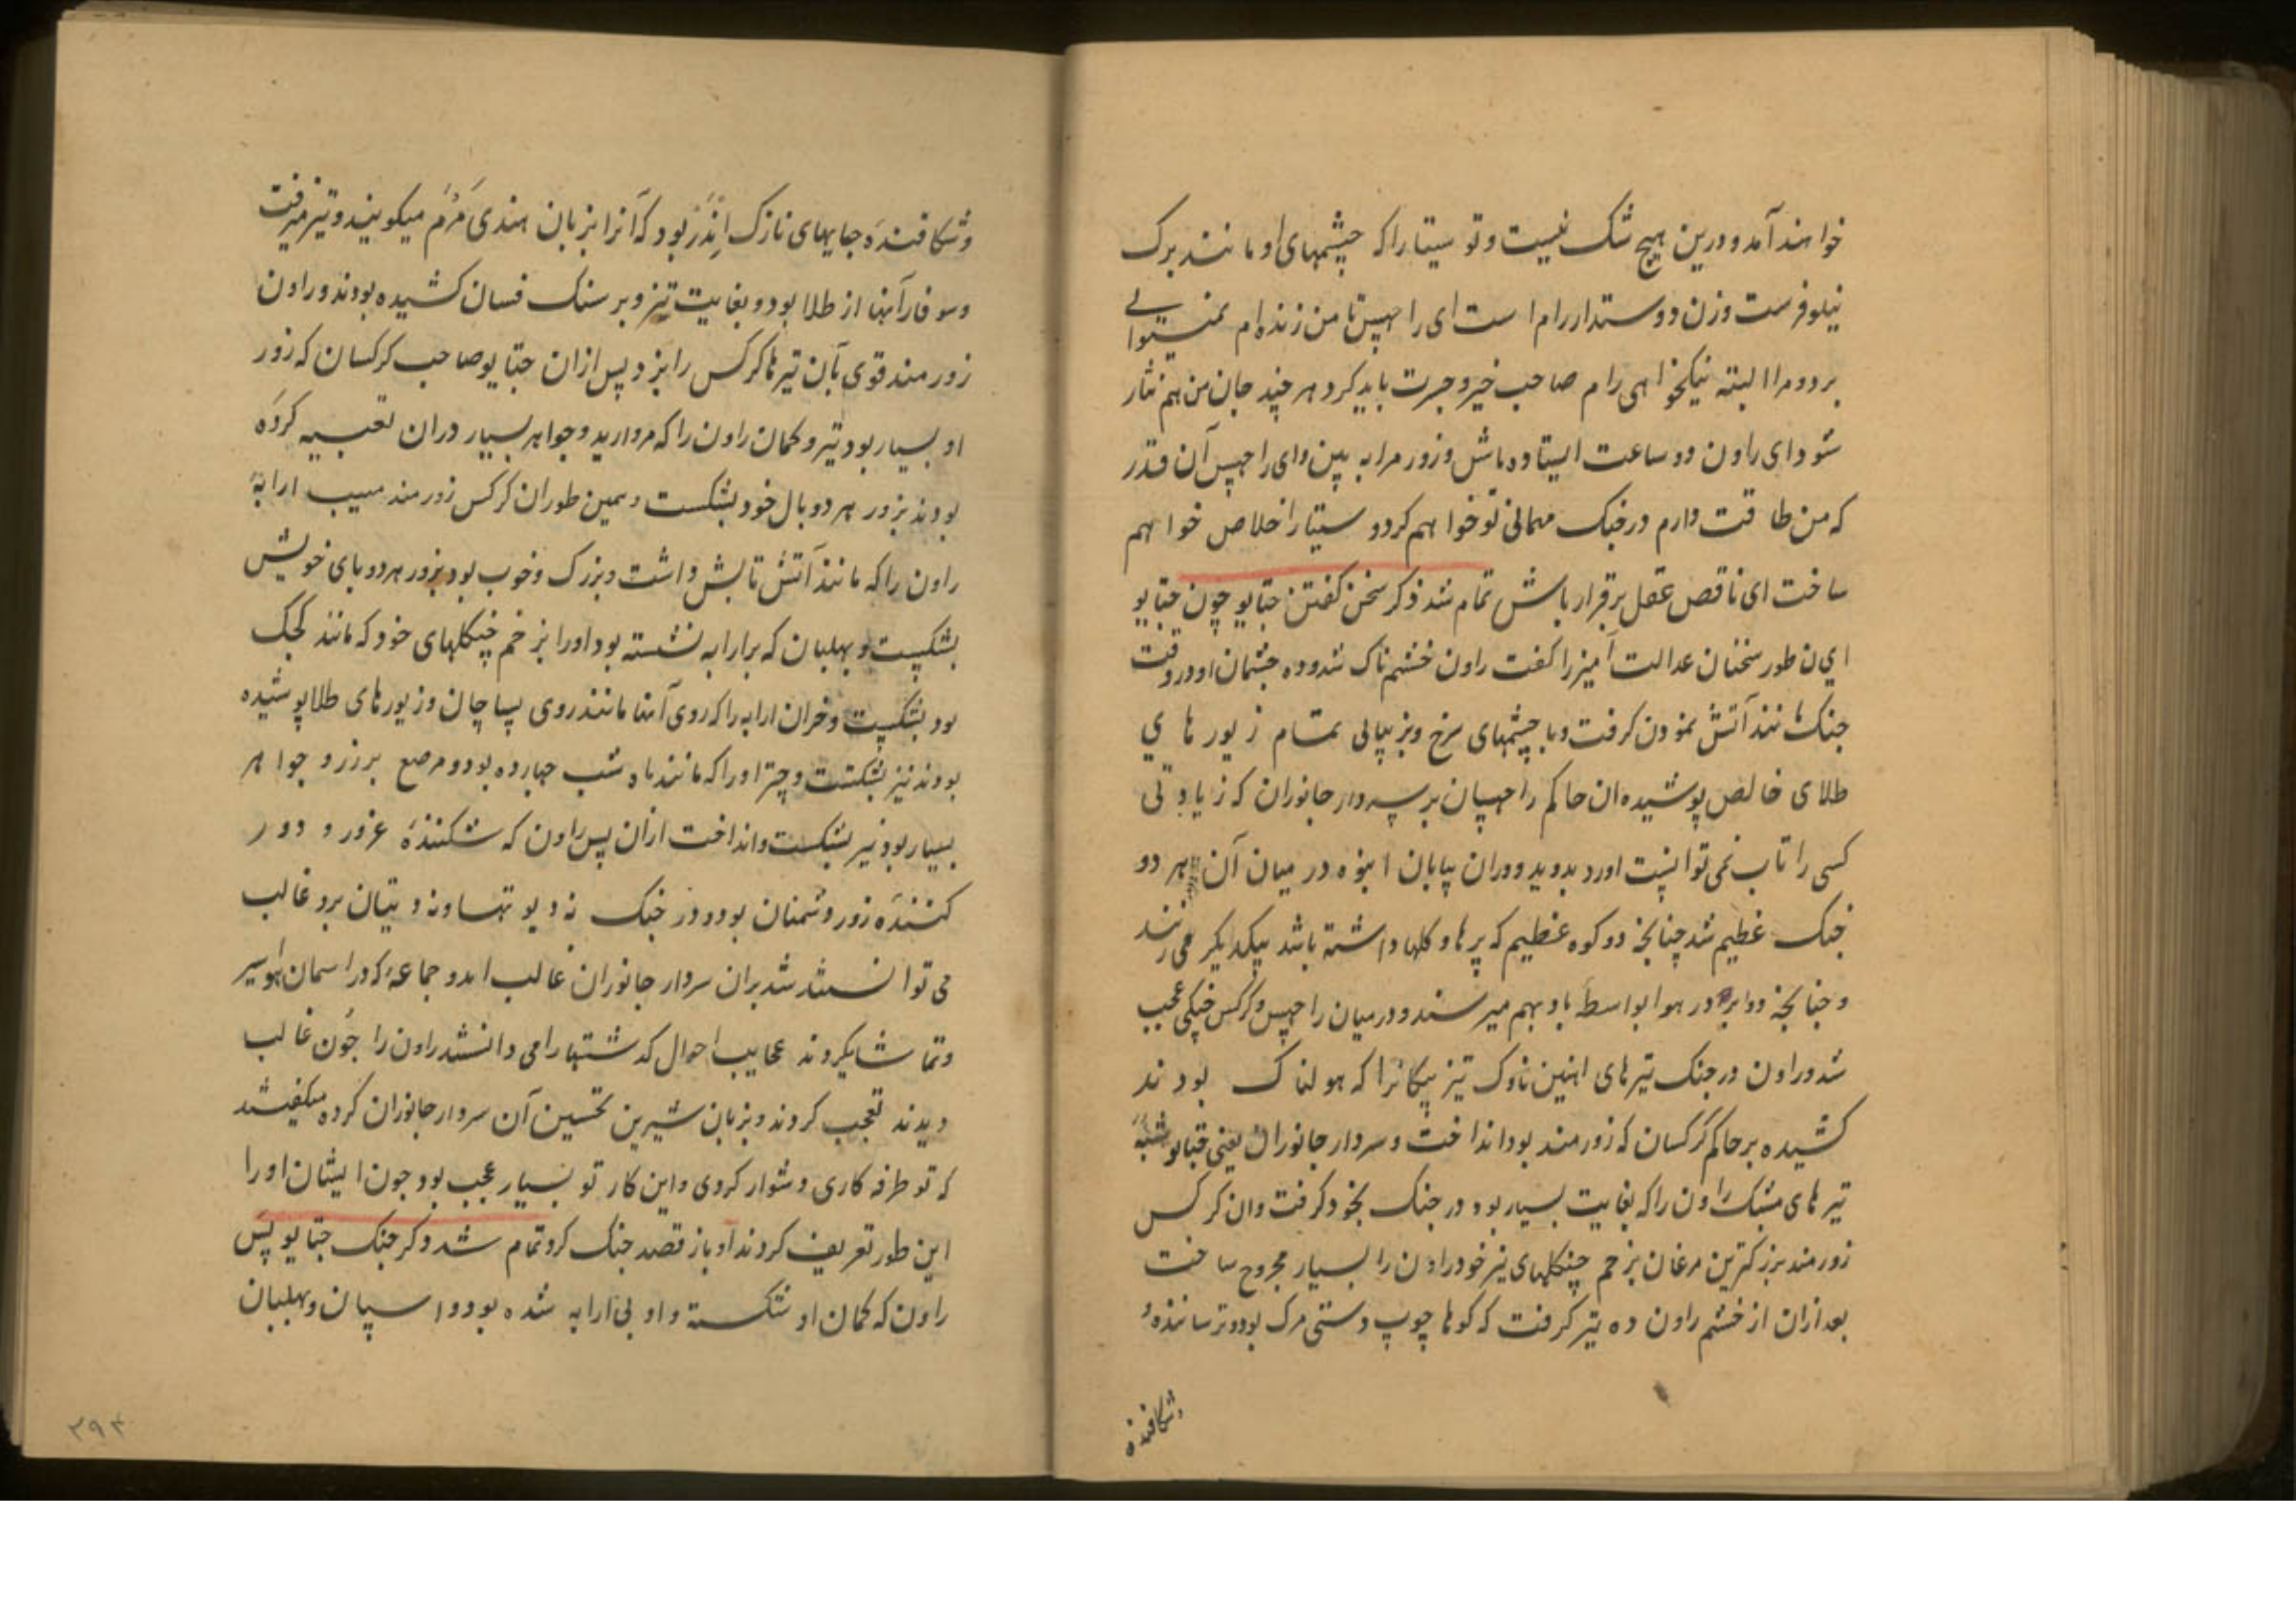 خواهند آمد و درین هیچ شک نیست و تو سیتا را که چشمهای او مانند برک
نیلوفرست و زن دوستدار رام است ای راجهس تا من زنده ام نمیتوانی
برد و مرا البته نیکخواهی رام صاحب خیر و جسرت باید کرد هر چند جان من هم نثار
شود ای راون دو ساعت ایستاده باش و زور مرا به بین و ای راجهس آن قدر
که من طاقت دارم در جنک مهمانی تو خواهم کرد و سیتا را خلاص خواهم
ساخت ای ناقص عقل برقرار باش تمام شد ذکر سخن کفتن جتایو چون جتایو
این طور سخنان عدالت آمیز را کفت راون خشم ناک شد و ده چشمان او در وقت
جنک مانند آتش نمودن کرفت و با چشمهای سرخ و بزیبائی تمام زیورهای
طلای خالص پوشیده ان حاکم راجهسان بر سردار جانوران که زیادتی
کسی را تاب نمی توانست اورد بدوید و دران بیابان انبوه در میان آن هر دو
جنک عظیم شد چنانچه دو کوه عظیم که پرها و کلها داشته باشد بیکدیکر می زنند
و چنانچه دو ابر در هوا بواسطه باد بهم میرسند و در میان راجهس و کرکس جنکی عجب
شد و راون در جنک تیرهای اهنین ناوک تیز پیکانرا که هولناک بودند
کشیده بر حاکم کرکسان که زورمند بود انداخت و سردار جانوران یعنی جتایو شبه
تیرهای مشبک راون را که بغایت بسیار بود در جنک بخود کرفت و ان کرکس
زورمند بزرکترین مرغان بزخم چنکلهای تیز خود راون را بسیار مجروح ساخت
بعد ازان از خشم راون ده تیر کرفت که کوها چوب دستی مرک بود و ترساننده
و شکافنده
و شکافنده جایهای نازک اندر بود که آنرا بزبان هندی مرم میکویند و تیز میرفت
و سوفار آنها از طلا بود و بغایت تیز و بر سنک فسان کشیده بودند و راون
زورمند قوی بآن تیرها کرکس را بزد پس ازان جتایو صاحب کرکسان که زور
او بسیار بود تیر و کمان راون را که مروارید و جواهر بسیار دران تعبیه کرده
بودند بزور هر دو بال خود بشکست و همین طور ان کرکس زورمند مهیب ارابه
راون را که مانند آتش تابش داشت و بزرک و خوب بود بزور هر دو پای خویش
بشکست و بهلبان که بر ارابه نشسته بود او را بزخم چنکلهای خود که مانند کجک
بود بشکست و خران ارابه را که روی آنها مانند روی پساچان و زیورهای طلا پوشیده
بودند نیز بشکست و چتر او را که مانند ماه شب چهارده بود و مرصع بر زر و جواهر
بسیار بود نیز بشکست و انداخت ازان پس راون که شکننده غرور و دور
کننده زور دشمنان بود و در جنک نه دیوتها و نه دیتیان برو غالب
می توانستند شد بران سردار جانوران غالب امد و جماعه که در اسمان سیر
و تماشا میکردند عجایب احوال کذشتها را می دانستند راون را چون غالب
دیدند تعجب کردند و بزبان شیرین تحسین آن سردار جانوران کرده میکفتند
که تو طرفه کاری دشوار کردی و این کار تو بسیار عجب بود چون ایشان او را
این طور تعریف کردند او باز قصد جنک کرد تمام شد ذکر جنک جتایو پس
راون که کمان او شکسته و او بی ارابه شده بود و اسپان و بهلبان
۲۹۴